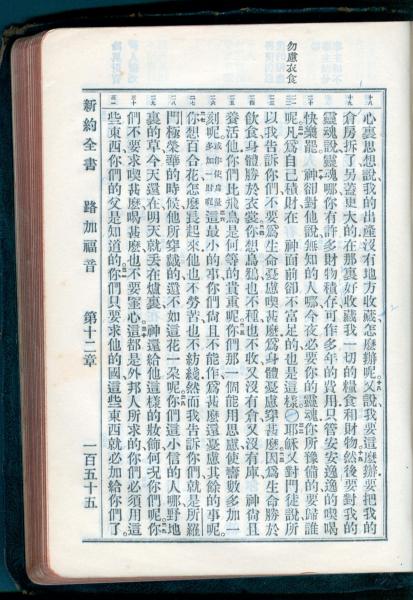 勿慮衣食
心裏思想說我的出產沒有地方收藏怎麽辦呢又說我要這麽辦要把我的
倉房拆了另蓋更大的在那裏好收藏我一切的糧食和財物然後要對我的
靈魂說靈魂哪你有許多財物積存可作多年的費用只管安安逸逸的喫喝
快樂罷 神卻對他說無知的人哪今夜必要你的靈魂你所豫備的要歸誰
呢凡爲自己積財在 神面前卻不富足的也是這樣○耶穌又對門徒說所
以我告訴你們不要爲生命憂慮喫甚麽爲身體憂慮穿甚麽因爲生命勝於
飲食身體勝於衣裳你想烏鴉也不種也不收又沒有倉又沒有庫 神尙且
養活他你們比飛鳥是何等的貴重呢你們那一個能用思慮使壽數多加一
刻呢或作使身量多加一肘呢這最小的事你們尙且不能作爲甚麽還憂慮其餘的事呢
你想百合花怎麽長起來他也不勞苦也不紡綫然而我告訴你們就是所羅
門極榮華的時候他所穿戴的還不如這花一朵呢你們這小信的人哪野地
裏的草今天還在明天就丟在爐裏 神還給他這樣的妝飾何況你們呢你
們不要求喫甚麽喝甚麽也不要罣心這都是外邦人所求的你們必須用這
些東西你們的父是知道的你們只要求他的國這些東西就必加給你們了
新約全書 路加福音 第十二章 一百五十五